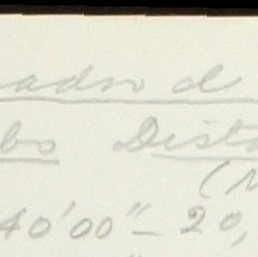 adro d
bo Dist
(M
40'00" - 20,